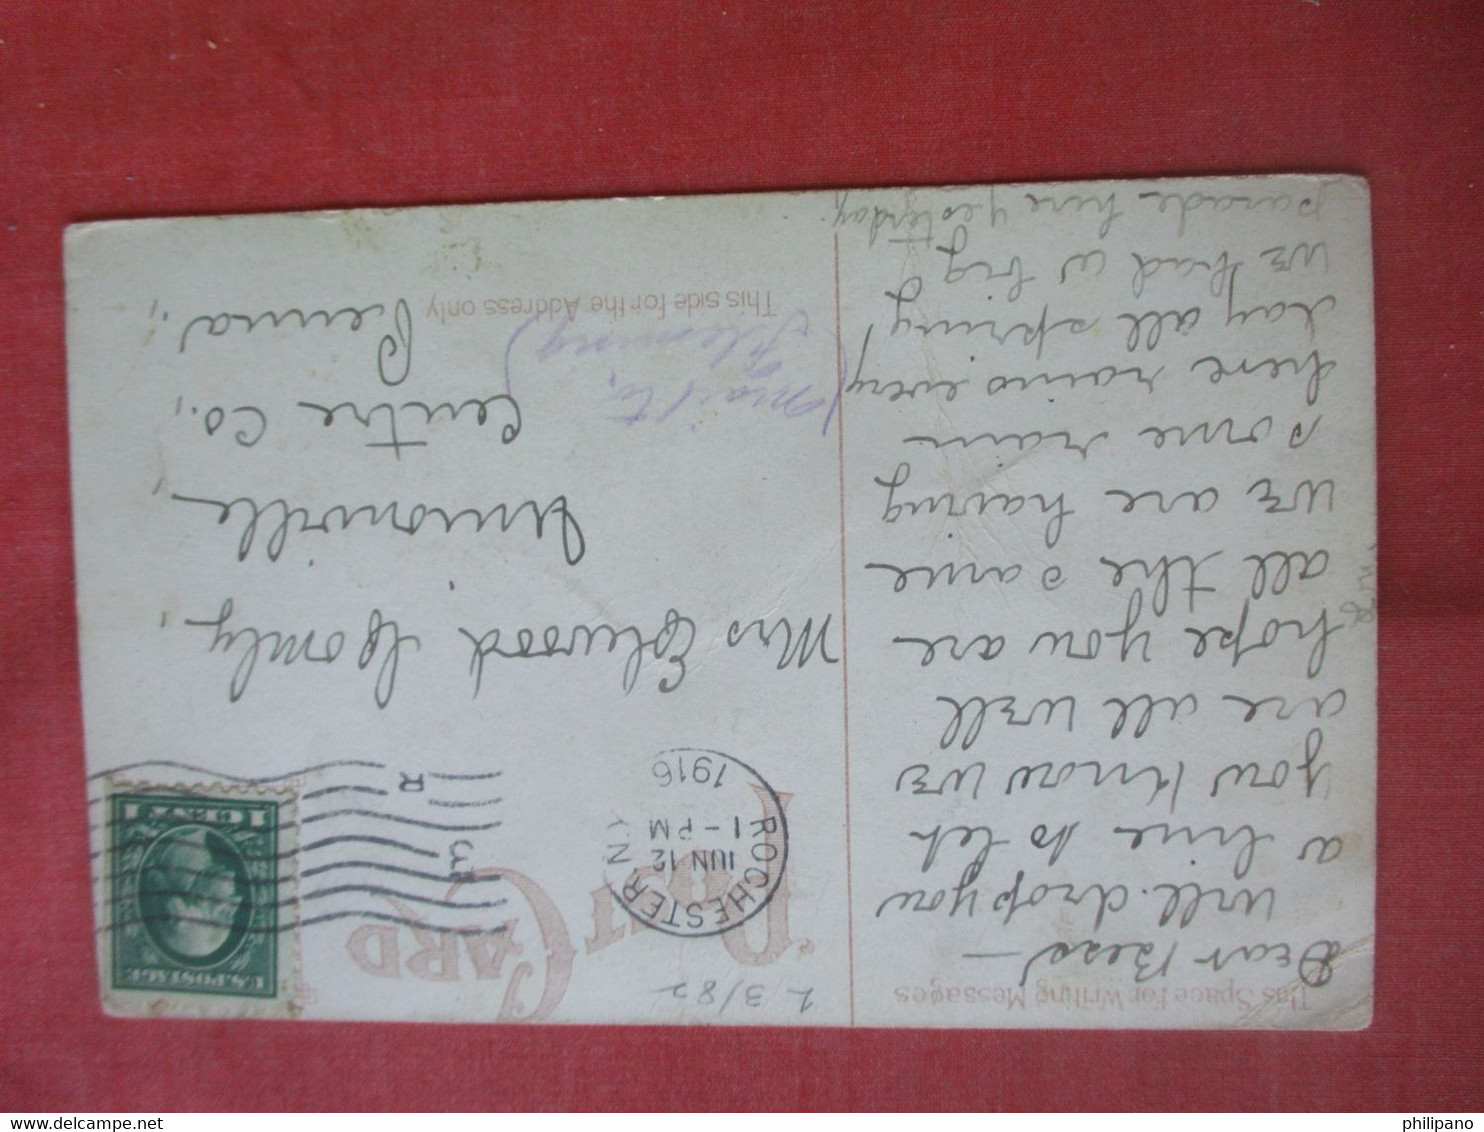 This Space for Writing Messages
Dear Bess —
will drop you
a line to let
you know we
are all well
hope you are
all the same
we are having
some rain
here rains every
day all spring
we had a big
parade here yesterday.
L 3/82
POST CARD
ROCHESTER
JUN 12
1 - PM
1916
3
R
U.S. POSTAGE
1 CENT 1
Mrs Elwood Comly,
Unionville,
Centre Co.,
Penna.,
(Mail to,
Fleming)
This Side for the Address only.
delcampe.net
philipano